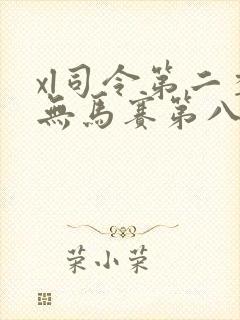 xl司令第二季
無馬赛第八
荣小荣